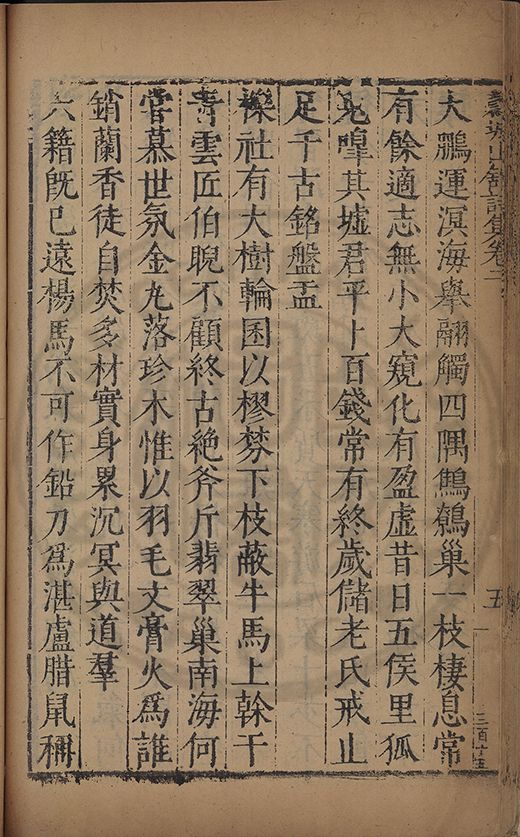 大鵬運溟海舉翮觸四隅鷦鷯巢一枝棲息常
有餘適志無小大窺化有盈虛昔日五侯里狐
兔嘷其墟君平十百錢常有終歲儲老氏戒止
足千古銘盤盂
櫟社有大樹輪囷以樛棼下枝蔽牛馬上榦干
青雲匠伯睨不顧終古絶斧斤翡翠巢南海何
甞慕世氛金丸落珍木惟以羽毛文膏火爲誰
銷蘭香徒自焚多材實身累沉冥與道羣
六籍旣已遠楊馬不可作鉛刀爲湛盧腊鼠稱
五
三百十五